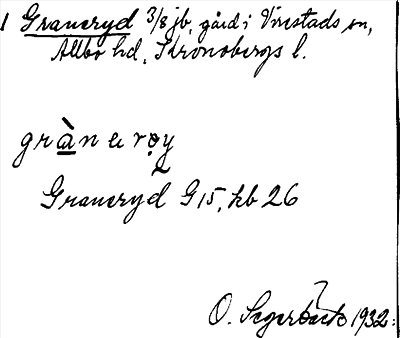 1 Graneryd 3/8 jb, gård i Virestads sn,
Allbo hd, Kronobergs l.
gràneroy
Graneryd G15, kb 26
O. Segerbäck 1932.